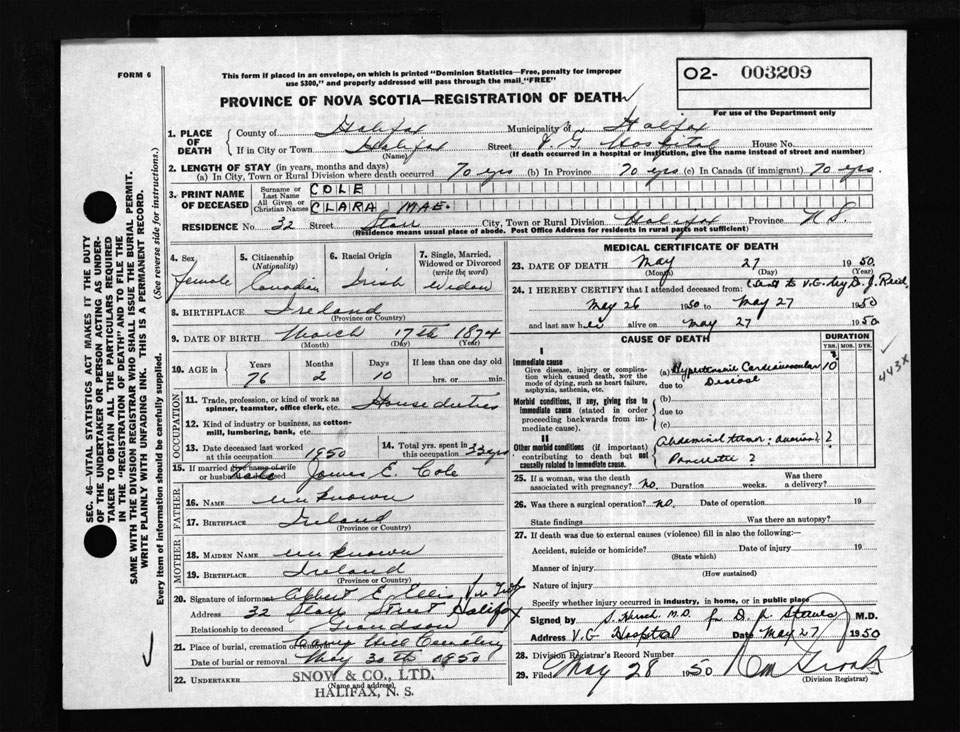 FORM 6
This form if placed in an envelope, on which is printed "Dominion Statistics—Free, penalty for improper
use $300," and properly addressed will pass through the mail "FREE"
O2- 003209
For use of the Department only
PROVINCE OF NOVA SCOTIA—REGISTRATION OF DEATH
1. PLACE OF DEATH
County of Halifax Municipality of Halifax
If in City or Town Halifax Street V. G. Hospital House No.
(Name) (If death occurred in a hospital or institution, give the name instead of street and number)
2. LENGTH OF STAY (in years, months and days)
(a) In City, Town or Rural Division where death occurred 70 yrs (b) In Province 70 yrs (c) In Canada (if immigrant) 70 yrs.
3. PRINT NAME OF DECEASED
Surname or Last Name COLE
All Given or Christian Names CLARA MAE
RESIDENCE No. 32 Street Starr City, Town or Rural Division Halifax Province N S.
(Residence means usual place of abode. Post Office Address for residents in rural parts not sufficient)
4. Sex Female
5. Citizenship (Nationality) Canadian
6. Racial Origin Irish
7. Single, Married, Widowed or Divorced (write the word) Widow
8. BIRTHPLACE Ireland
(Province or Country)
9. DATE OF BIRTH March 17th 1874
(Month) (Day) (Year)
10. AGE in Years Months Days If less than one day old
76 2 10 hrs. or min.
OCCUPATION
11. Trade, profession, or kind of work as spinner, teamster, office clerk, etc. House duties
12. Kind of industry or business, as cotton-mill, lumbering, bank, etc.
13. Date deceased last worked at this occupation 1950
14. Total yrs. spent in this occupation 33 yrs
15. If married give name of wife or husband James E. Cole
FATHER
16. NAME unknown
17. BIRTHPLACE Ireland
(Province or Country)
MOTHER
18. MAIDEN NAME unknown
19. BIRTHPLACE Ireland
(Province or Country)
20. Signature of informant Albert E. Ellis
Address 32 Starr Street Halifax
Relationship to deceased Grandson
21. Place of burial, cremation or removal Camp Hill Cemetery
Date of burial or removal May 30th 1950
22. UNDERTAKER SNOW & CO., LTD.
(Name and address)
HALIFAX, N. S.
MEDICAL CERTIFICATE OF DEATH
23. DATE OF DEATH May 27 1950
(Month) (Day) (Year)
24. I HEREBY CERTIFY that I attended deceased from:
May 26 1950 to May 27 1950
and last saw her alive on May 27 1950
CAUSE OF DEATH
DURATION
YRS. MOS. DYS.
I
Immediate cause
Give disease, injury or complication which caused death, not the mode of dying, such as heart failure, asphyxia, asthenia, etc.
(a) Hypertensive Cardiovascular 10
due to Disease
Morbid conditions, if any, giving rise to immediate cause (stated in order proceeding backwards from immediate cause).
(b)
due to
(c)
II
Other morbid conditions (if important) contributing to death but not causally related to immediate cause.
Abdominal tumor: ovarian? ?
Pancreatic ?
443X
25. If a woman, was the death associated with pregnancy? no. Duration weeks. Was there a delivery?
26. Was there a surgical operation? no. Date of operation 19
State findings Was there an autopsy?
27. If death was due to external causes (violence) fill in also the following:—
Accident, suicide or homicide? Date of injury 19
(State which)
Manner of injury
(How sustained)
Nature of injury
Specify whether injury occurred in industry, in home, or in public place
Signed by S. Hirsch M.D. for D. K. M.D.
Address V. G Hospital Date May 27 1950
28. Division Registrar's Record Number
29. Filed May 28 1950
(Division Registrar)
SEC. 46—VITAL STATISTICS ACT MAKES IT THE DUTY
OF THE UNDERTAKER OR PERSON ACTING AS UNDERTAKER
TO OBTAIN ALL THE PARTICULARS REQUIRED
IN THE "REGISTRATION OF DEATH" AND TO FILE THE
SAME WITH THE DIVISION REGISTRAR WHO SHALL ISSUE THE BURIAL PERMIT.
WRITE PLAINLY WITH UNFADING INK. THIS IS A PERMANENT RECORD.
Every item of information should be carefully supplied. (See reverse side for instructions.)